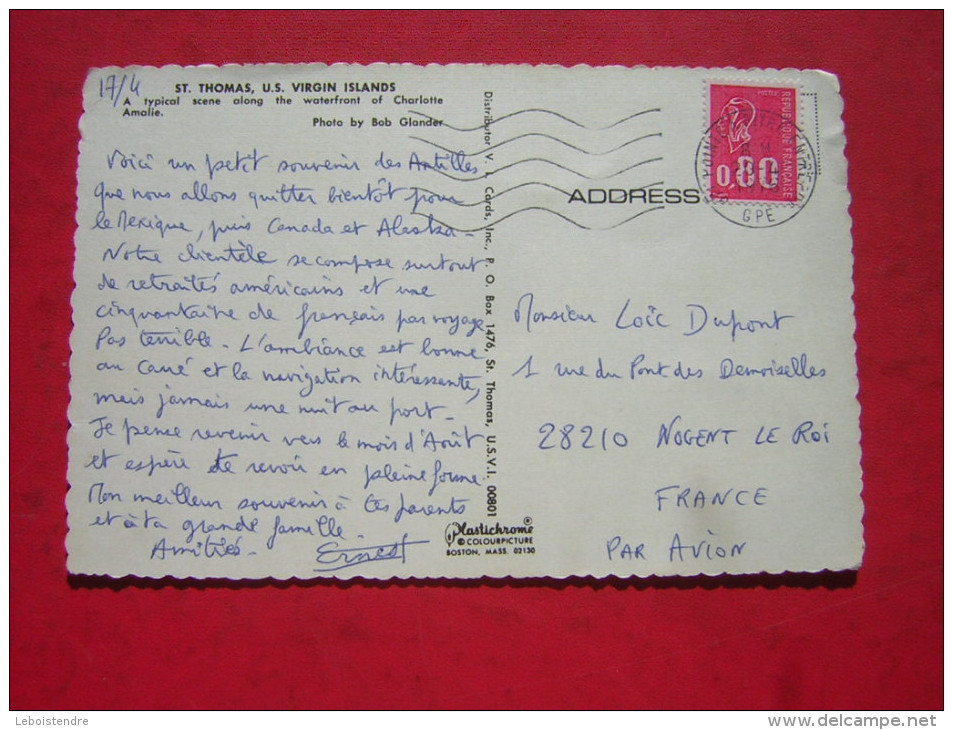 17/4
ST. THOMAS, U.S. VIRGIN ISLANDS
A typical scene along the waterfront of Charlotte
Amalie.
Photo by Bob Glander
Voici un petit souvenir des Antilles
que nous allons quitter bientôt pour
le Mexique, puis Canada et Alaska -
Notre clientèle se compose surtout
de retraités américains et une
cinquantaine de français par voyage
Pas terrible - L'ambiance est bonne
au Carré et la navigation intéressante,
mais jamais une nuit au port -
Je pense revenir vers le mois d'Août
et espère te revoir en pleine forme
Mon meilleur souvenir à tes parents
et à ta grande famille -
Amitiés -
Ernest
Distributor V. I. Cards, Inc., P. O. Box 1476, St. Thomas, U.S.V.I. 00801
Plastichrome®
© COLOURPICTURE
BOSTON, MASS. 02130
ADDRESS
POSTES
REPUBLIQUE FRANÇAISE
0,80
GPE
Monsieur Loïc Dupont
1 rue du Pont des Demoiselles
28210 NOGENT LE ROI
FRANCE
PAR AVION
Leboistendre
http://www.delcampe.net